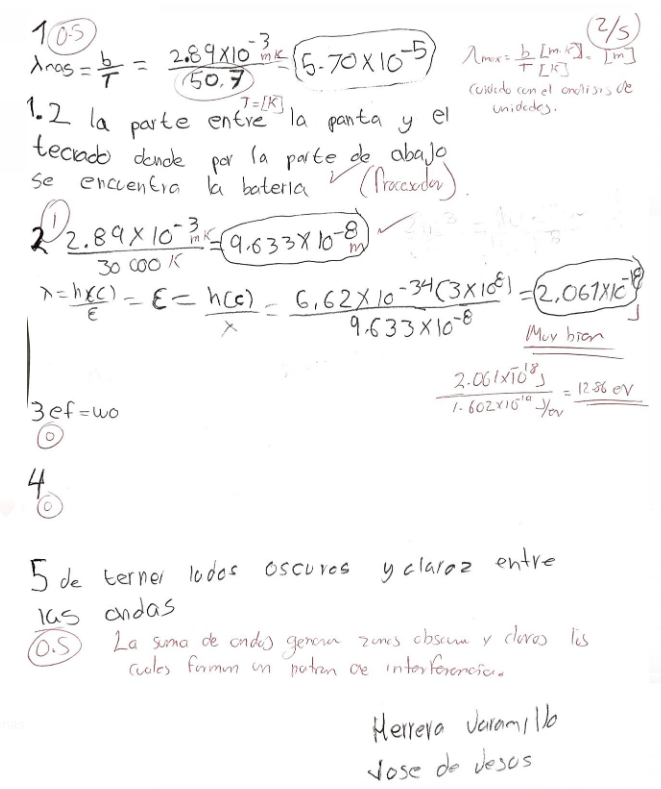 1 0.5
(2/5)
λmas = b/T = 2.89x10^-3 mK / 50.7 = 5.70x10^-5
T=[K]
λmax = b/T [m·K]/[K] = [m]
Cuidado con el analisis de
unidades.
1.2 la parte entre la panta y el
teclado donde por la parte de abajo
se encuentra la bateria ✓ (Procesador).
2 1 2.89x10^-3 mK / 30 000 K = 9.633x10^-8 m ✓
λ = h(c)/E = E = h(c)/λ = 6.62x10^-34(3x10^8) / 9.633x10^-8 = 2.061x10^-18 J
Muy bien
2.061x10^-18 J / 1.602x10^-19 J/eV = 12.86 eV
3 ef=wo
0
4
0
5 de terner lados oscuros y claroz entre
las ondas
0.5 La suma de ondas generan zonas obscura y claros los
cuales forman un patron de interferencia.
Herrera Jaramillo
Jose de Jesus